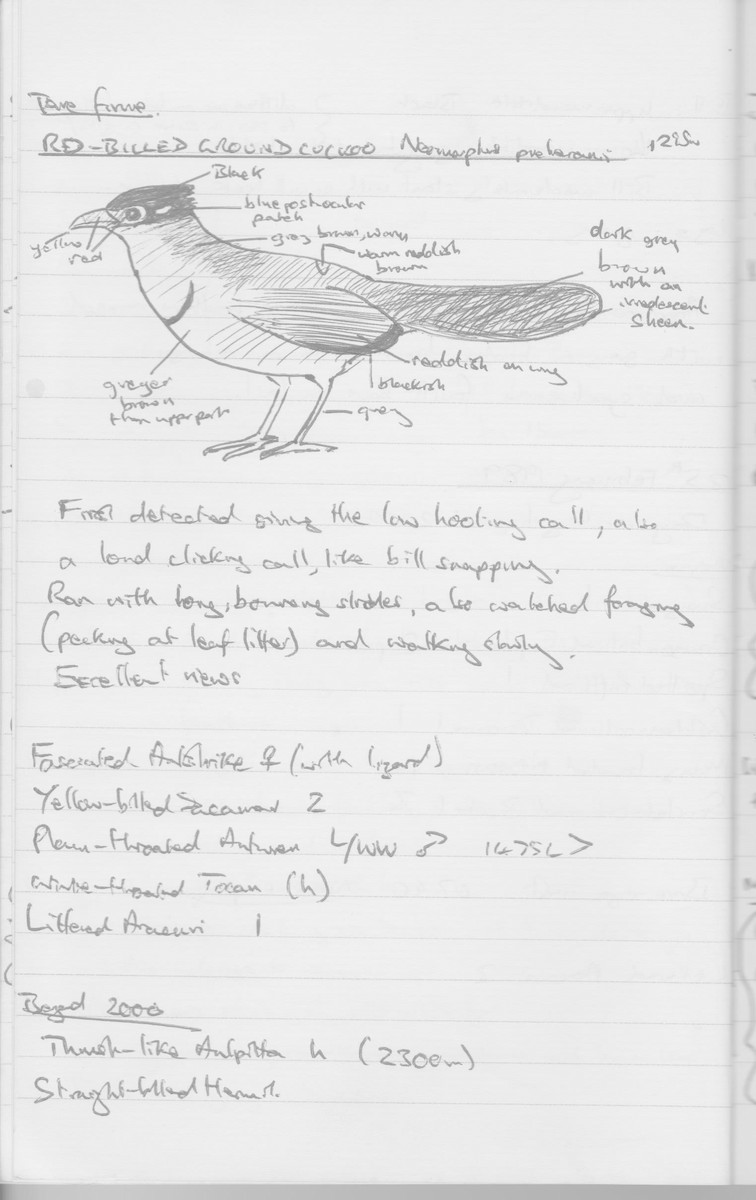 Terra firme.
RED-BILLED GROUND CUCKOO Neomorphus pucheranii
Black
blue postocular
patch
yellow
red
grey brown, warm
warm reddish
brown
dark grey
brown
with an
irredescent
sheen.
reddish on wing
blackish
greyer
brown
than upperparts
grey
First detected giving the low hooting call, also
a loud clicking call, like bill snapping.
Ran with long, bouncing strides, also watched foraging
(pecking at leaf litter) and walking slowly.
Excellent views
Fasciated Antshrike ♀ (with lizard)
Yellow-billed Jacamar 2
Plain-throated Antwren ♂
White-throated Toucan (h)
Lettered Aracari 1
Beyond 2000
Thrush-like Antpitta h (2300m)
Straight-billed Hermit.